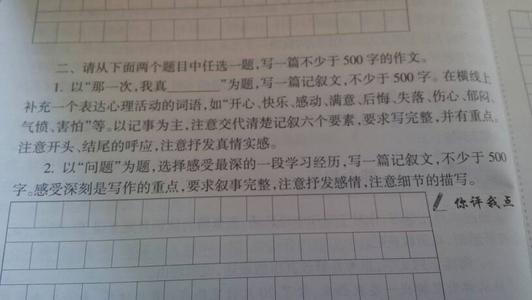 二、请从下面两个题目中任选一题,写一篇不少于500字的作文。
1. 以“那一次,我真______”为题,写一篇记叙文,不少于500字。在横线上
补充一个表达心理活动的词语,如“开心、快乐、感动、满意、后悔、失落、伤心、郁闷、
气愤、害怕”等。以记事为主,注意交代清楚记叙六个要素,要求写完整,并有重点。
注意开头、结尾的呼应,注意抒发真情实感。
2. 以“问题”为题,选择感受最深的一段学习经历,写一篇记叙文,不少于500
字。感受深刻是写作的重点,要求叙事完整,注意抒发感情,注意细节的描写。
你评我点